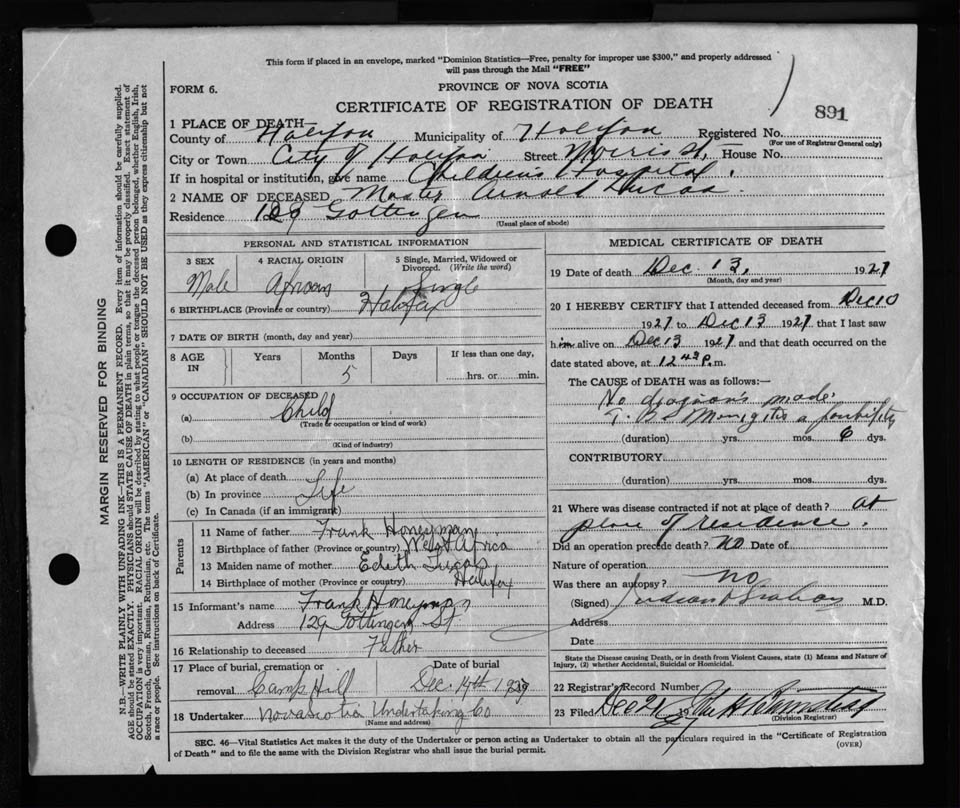 This form if placed in an envelope, marked "Dominion Statistics—Free, penalty for improper use $300," and properly addressed
will pass through the Mail "FREE"
FORM 6.
PROVINCE OF NOVA SCOTIA
CERTIFICATE OF REGISTRATION OF DEATH
891
1 PLACE OF DEATH—
County of Halifax Municipality of Halifax Registered No.
(For use of Registrar General only)
City or Town City of Halifax Street Morris St. House No.
If in hospital or institution, give name Children's Hospital.
2 NAME OF DECEASED Master Arnold Lucas.
Residence 129 Gottingen
(Usual place of abode)
PERSONAL AND STATISTICAL INFORMATION
3 SEX 4 RACIAL ORIGIN 5 Single, Married, Widowed or
Divorced. (Write the word)
Male African Single
6 BIRTHPLACE (Province or country) Halifax
7 DATE OF BIRTH (month, day and year)
8 AGE IN Years Months Days If less than one day,
5 hrs. or min.
9 OCCUPATION OF DECEASED
(a) Child
(Trade or occupation or kind of work)
(b)
(Kind of industry)
10 LENGTH OF RESIDENCE (in years and months)
(a) At place of death
(b) In province Life
(c) In Canada (if an immigrant)
Parents
11 Name of father Frank Honeyman
12 Birthplace of father (Province or country) West Africa
13 Maiden name of mother Edith Lucas
14 Birthplace of mother (Province or country) Halifax
15 Informant's name Frank Honeyman
Address 129 Gottingen St
16 Relationship to deceased Father
17 Place of burial, cremation or Date of burial
removal Camp Hill Dec. 14th 1927
18 Undertaker Nova Scotia Undertaking Co
(Name and address)
MEDICAL CERTIFICATE OF DEATH
19 Date of death Dec. 13, 1927
(Month, day and year)
20 I HEREBY CERTIFY that I attended deceased from Dec 10
1927 to Dec 13 1927 that I last saw
him alive on Dec 13 1927 and that death occurred on the
date stated above, at 12 P.m.
The CAUSE OF DEATH was as follows:—
No diagnosis made.
T. B. Meningitis a possibility
(duration) yrs. mos. 6 dys.
CONTRIBUTORY
(duration) yrs. mos. dys.
21 Where was disease contracted if not at place of death? at
place of residence.
Did an operation precede death? No Date of
Nature of operation
Was there an autopsy? no
(Signed) M.D.
Address
Date
State the Disease causing Death, or in death from Violent Causes, state (1) Means and Nature of
Injury, (2) whether Accidental, Suicidal or Homicidal.
22 Registrar's Record Number
23 Filed Dec 21 19 27
(Division Registrar)
SEC. 46—Vital Statistics Act makes it the duty of the Undertaker or person acting as Undertaker to obtain all the particulars required in the "Certificate of Registration
of Death" and to file the same with the Division Registrar who shall issue the burial permit.
(OVER)
MARGIN RESERVED FOR BINDING
N.B.—WRITE PLAINLY WITH UNFADING INK—THIS IS A PERMANENT RECORD. Every item of information should be carefully supplied.
AGE should be stated EXACTLY. PHYSICIANS should STATE CAUSE OF DEATH in plain terms, so that it may be properly classified. Exact statement of
OCCUPATION is very important. RACIAL ORIGIN will be described by stating to what people or tongue the deceased person belonged, whether English, Irish,
Scotch, French, German, Russian, Ruthenian, etc. The terms "AMERICAN" or "CANADIAN" SHOULD NOT BE USED as they express citizenship but not
a race or people. See instructions on back of Certificate.